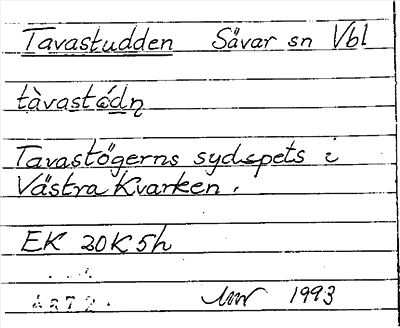 Tavastudden Sävar sn Vbl
tàvastódn̥
Tavastögerns sydspets i
Västra Kvarken.
EK 20K5h
1993